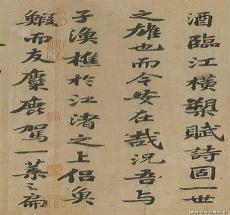 酒臨江橫槊賦詩固一世
之雄也而今安在哉況吾与
子漁樵於江渚之上侶魚
鰕而友麋鹿駕一葉之扁